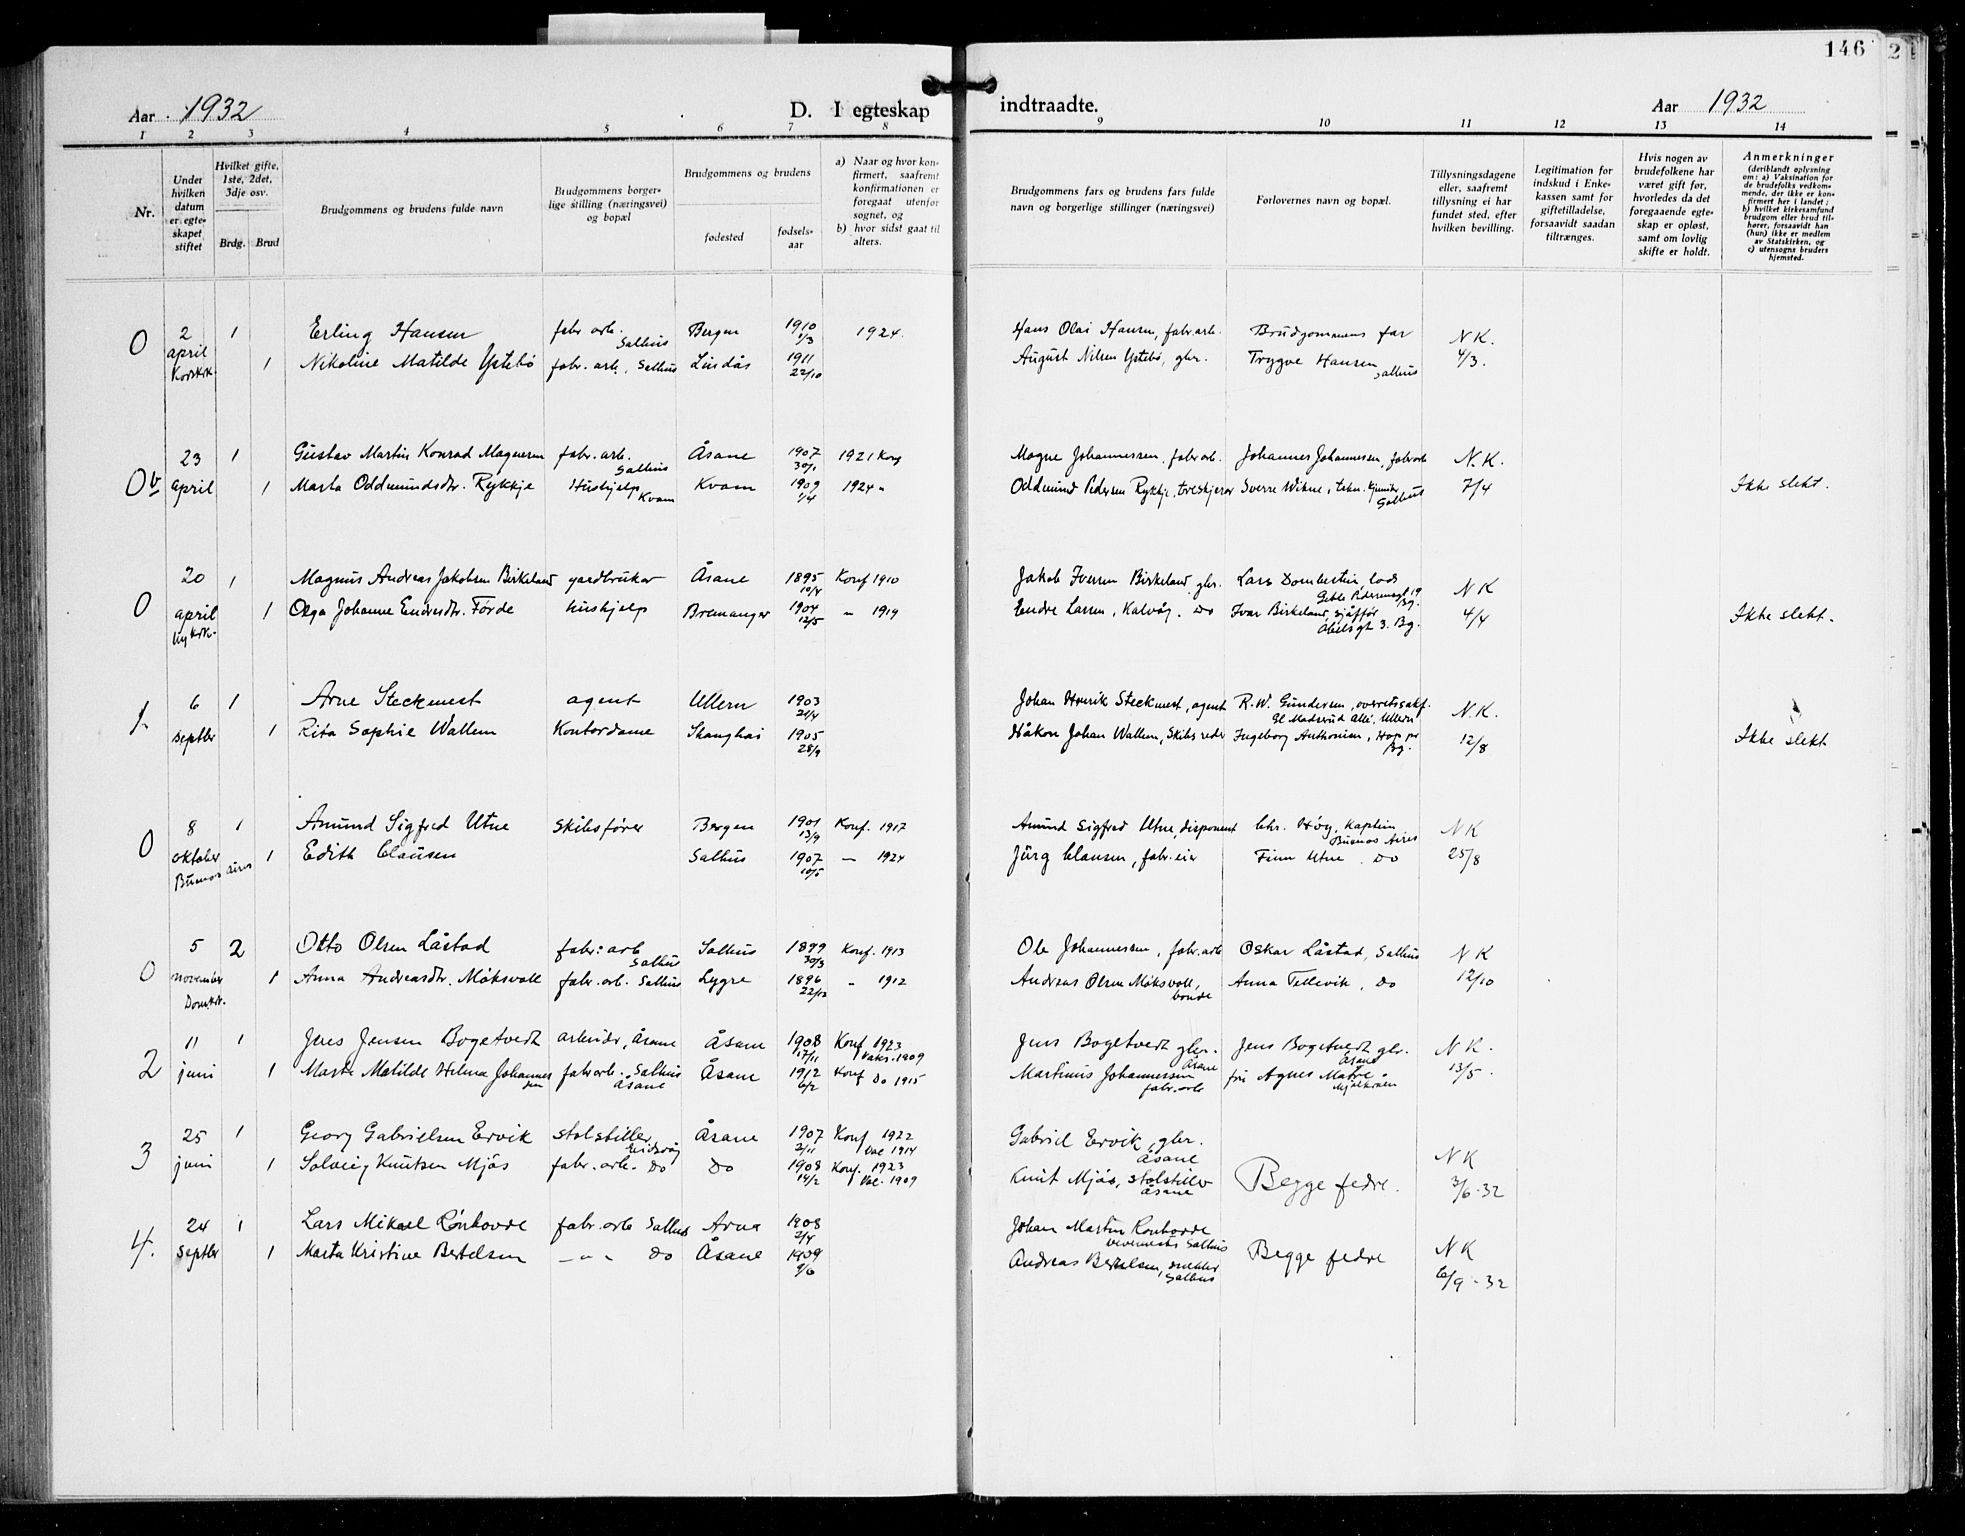 146
2
Aar 1932
D. I egteskap
indtraadte.
Aar 1932
1 2 3 4 5 6 7 8 9 10 11 12 13 14
Nr.
Under hvilken datum er egte- skapet stiftet
Hvilket gifte, 1ste, 2det, 3dje osv.
Brdg. Brud
Brudgommens og brudens fulde navn
Brudgommens borger- lige stilling (næringsvei) og bopæl
Brudgommens og brudens
fødested
fødsels- aar
a) Naar og hvor kon- firmert, saafremt konfirmationen er foregaat utenfor sognet, og
b) hvor sidst gaat til alters.
Brudgommens fars og brudens fars fulde navn og borgerlige stillinger (næringsvei)
Forlovernes navn og bopæl.
Tillysningsdagene eller, saafremt tillysning ei har fundet sted, efter hvilken bevilling.
Legitimation for indskud i Enke- kassen samt for giftetilladelse, forsaavidt saadan tiltrænges.
Hvis nogen av brudefolkene har været gift før, hvorledes da det foregaaende egte- skap er opløst, samt om lovlig skifte er holdt.
Anmerkninger (deriblandt oplysning om: a) Vaksination for de brudefolks vedkom- mende, der ikke er kon- firmert her i landet; b) hvilket kirkesamfund brudgom eller brud til- hører, forsaavidt han (hun) ikke er medlem av Statskirken, og c) utensogns bruders hjemsted.
0 2 april Korskk. 1 Erling Hansen fabr. arb. Salhus Bergen 1910 1/3 1924. Hans Olai Hansen, fabr.arb. Brudgommens far N K. 4/3.
1 Nikoline Matilde Ystebø fabr. arb. Salhus Lindås 1911 22/10 August Nilsen Ystebø, gbr. Trygve Hansen Salhus
0 23 april 1 Gustav Martin Konrad Magnesen fabr. arb. Salhus Åsane 1907 30/1 1921 Konf Magne Johannessen, fabr arb. Johannes Johannesen, fabr arb N. K. 7/4
1 Marta Oddmundsdtr. Rykkje Hushjelp Kvam Kvam 1909 1/4 1924 " Oddmund Pedersen Rykkje, treskjerer Sverre Wikne, Salhus Ikke slekt.
0 20 april Nykrk. 1 Magnus Andreas Jakobsen Birkeland gardbruker Åsane 1895 10/4 Konf 1910 Jakob Iversen Birkeland gbr. Lars Dombestein, lods Gabls Pedersensgt 19 Bg. N K 4/4
1 Olga Johanne Endresdtr. Førde hushjelp Bremanger 1904 12/5 " 1919 Endre Larsen, Kalvåg. Do Ivar Birkeland, sjåffør Abelsgt 3. Bg. Ikke slekt.
1. 6 septbr 1 Arne Steckmest agent Ullern 1903 21/4 Johan Henrik Steckmest, agent R. W. Gundersen, overretssakf. Gl Maderud Allé, Ullern N. K. 12/8
1 Rita Sophie Wallem Kontordame Shanghai 1905 28/9 Håkon Johan Wallem, Skibsreder Ingeborg Anthonisen, Hop pr Bg. Ikke slekt
0 8 oktober Buenos Aires 1 Amund Sigfred Utne Skibsfører Bergen 1901 13/9 Konf. 1917 Amund Sigfred Utne, disponent Chr. Høy, Kaptein Buenos Aires N K 25/8
1 Edith Clausen Salhus 1907 10/5 — 1924 Jürg Clausen, fabr. eier Finn Utne. Do
0 5 november Domkrk. 2 Otto Olsen Låstad fabr. arb Salhus Salhus 1899 30/3 Konf. 1913 Ole Johannessen, fabr.arb Oskar Låstad, Salhus N K 12/10
1 Anna Andreasdtr. Moksvoll fabr. arb. Salhus Lygre 1896 22/12 " 1912 Andreas Olsen Moksvoll, bonde Anna Tellevik, Do
2 11 juni 1 Jens Jensen Bogetvedt arbeider, Åsane Åsane 1908 17/11 Konf 1923 Vaks. 1909 Jens Bogetvedt gbr. Åsane Jens Bogetvedt gbr. Åsane N K. 13/5.
1 Marta Matilde Helena Johannes sen fabr arb. Salhus Åsane Åsane 1912 6/2 Konf Do 1915 Martinus Johannessen fabr. arb fru Agnes Matre Mjølkråen
3 25 juni 1 Georg Gabrielsen Ervik stolstiller Eidsvåg Åsane 1907 2/11 Konf 1922 Vac 1914 Gabriel Ervik, gbr. Åsane Begge fedre. N K 3/6 - 32
1 Solveig Knutsen Mjøs fabr. arb. Do Do 1908 14/2 Konf. 1923 Vac. 1909 Knut Mjøs, stolstiller Åsane
4. 24 septbr 1 Lars Mikael Rønhovde fabr. arb Salhus Arna 1908 2/4 Johan Martin Rønhovde vevemester Salhus Begge fedre N K 6/9 - 32
1 Marta Kristine Bertelsen — " — Do Åsane 1909 9/6 Andreas Bertelsen, snekker Salhus